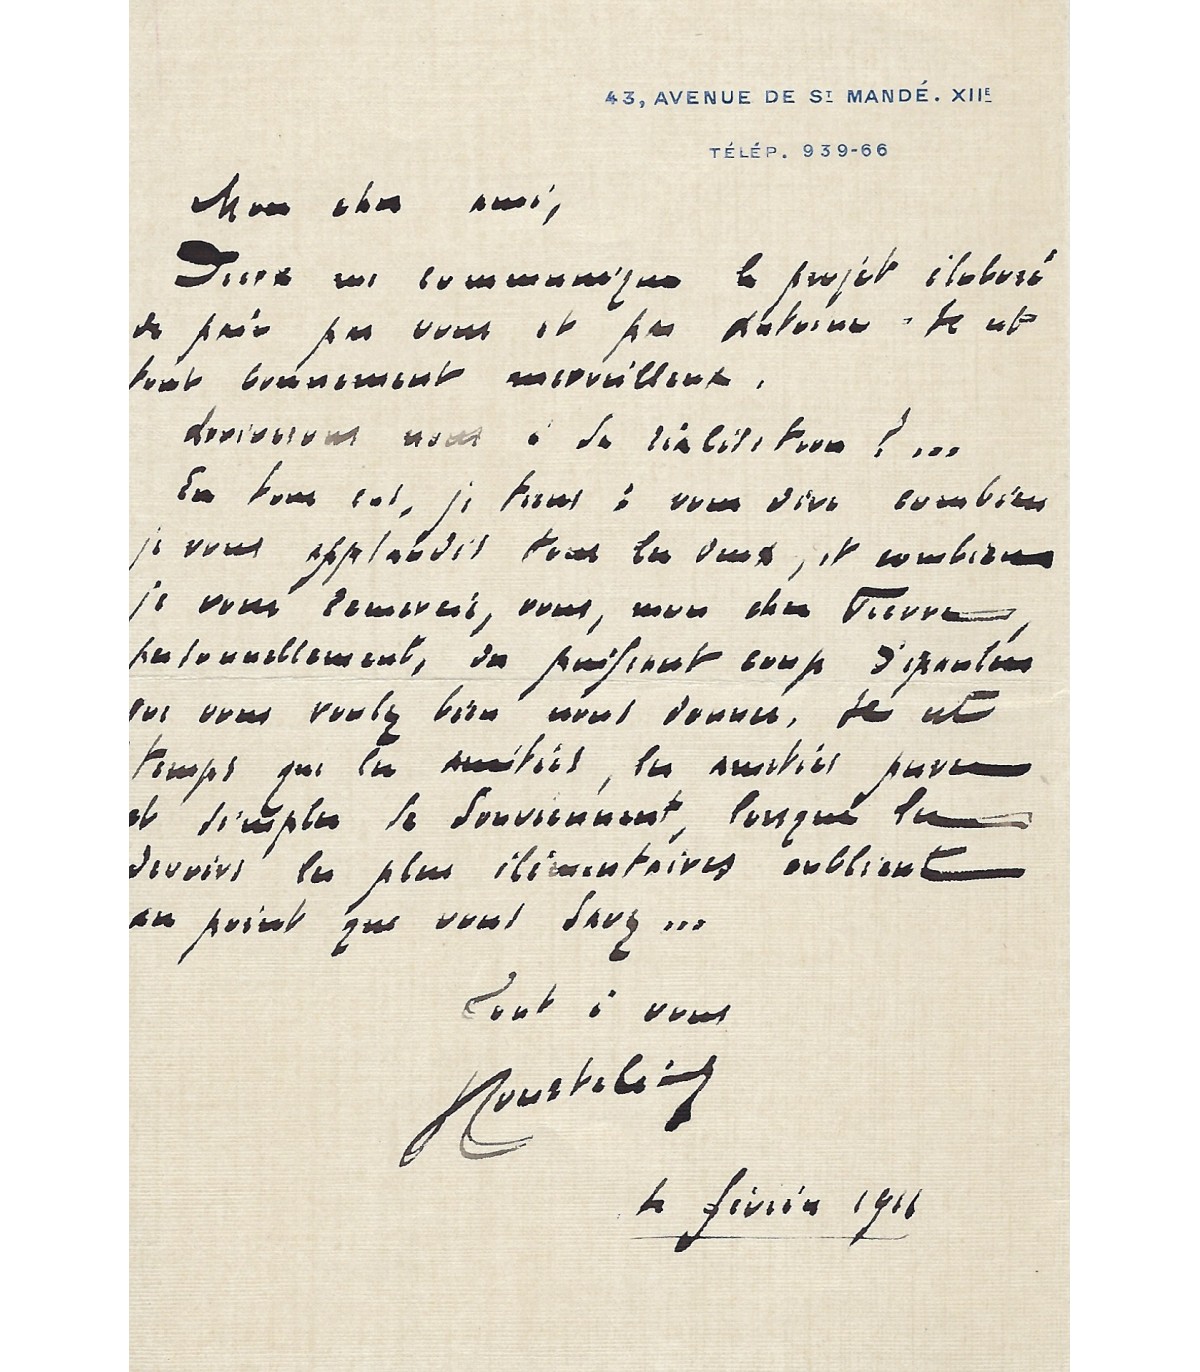 43, AVENUE DE ST MANDÉ. XIIE
TÉLÉP. 939-66
Mon cher ami,
me communique le projet élaboré
de pair par vous et par Antoine. Il est
tout bonnement merveilleux.
Arriverons nous à sa réalisation ?...
En tous cas, je tiens à vous dire combien
je vous applaudis tous les deux, et combien
je vous remercie, vous, mon cher Pierre,
personnellement, du puissant coup d'épaules
que vous voulez bien nous donner. Il est
temps que les amitiés, les amitiés pures
et simples se souviennent, lorsque les
devoirs les plus élémentaires oublient
au point que vous savez...
Tout à vous
février 1911